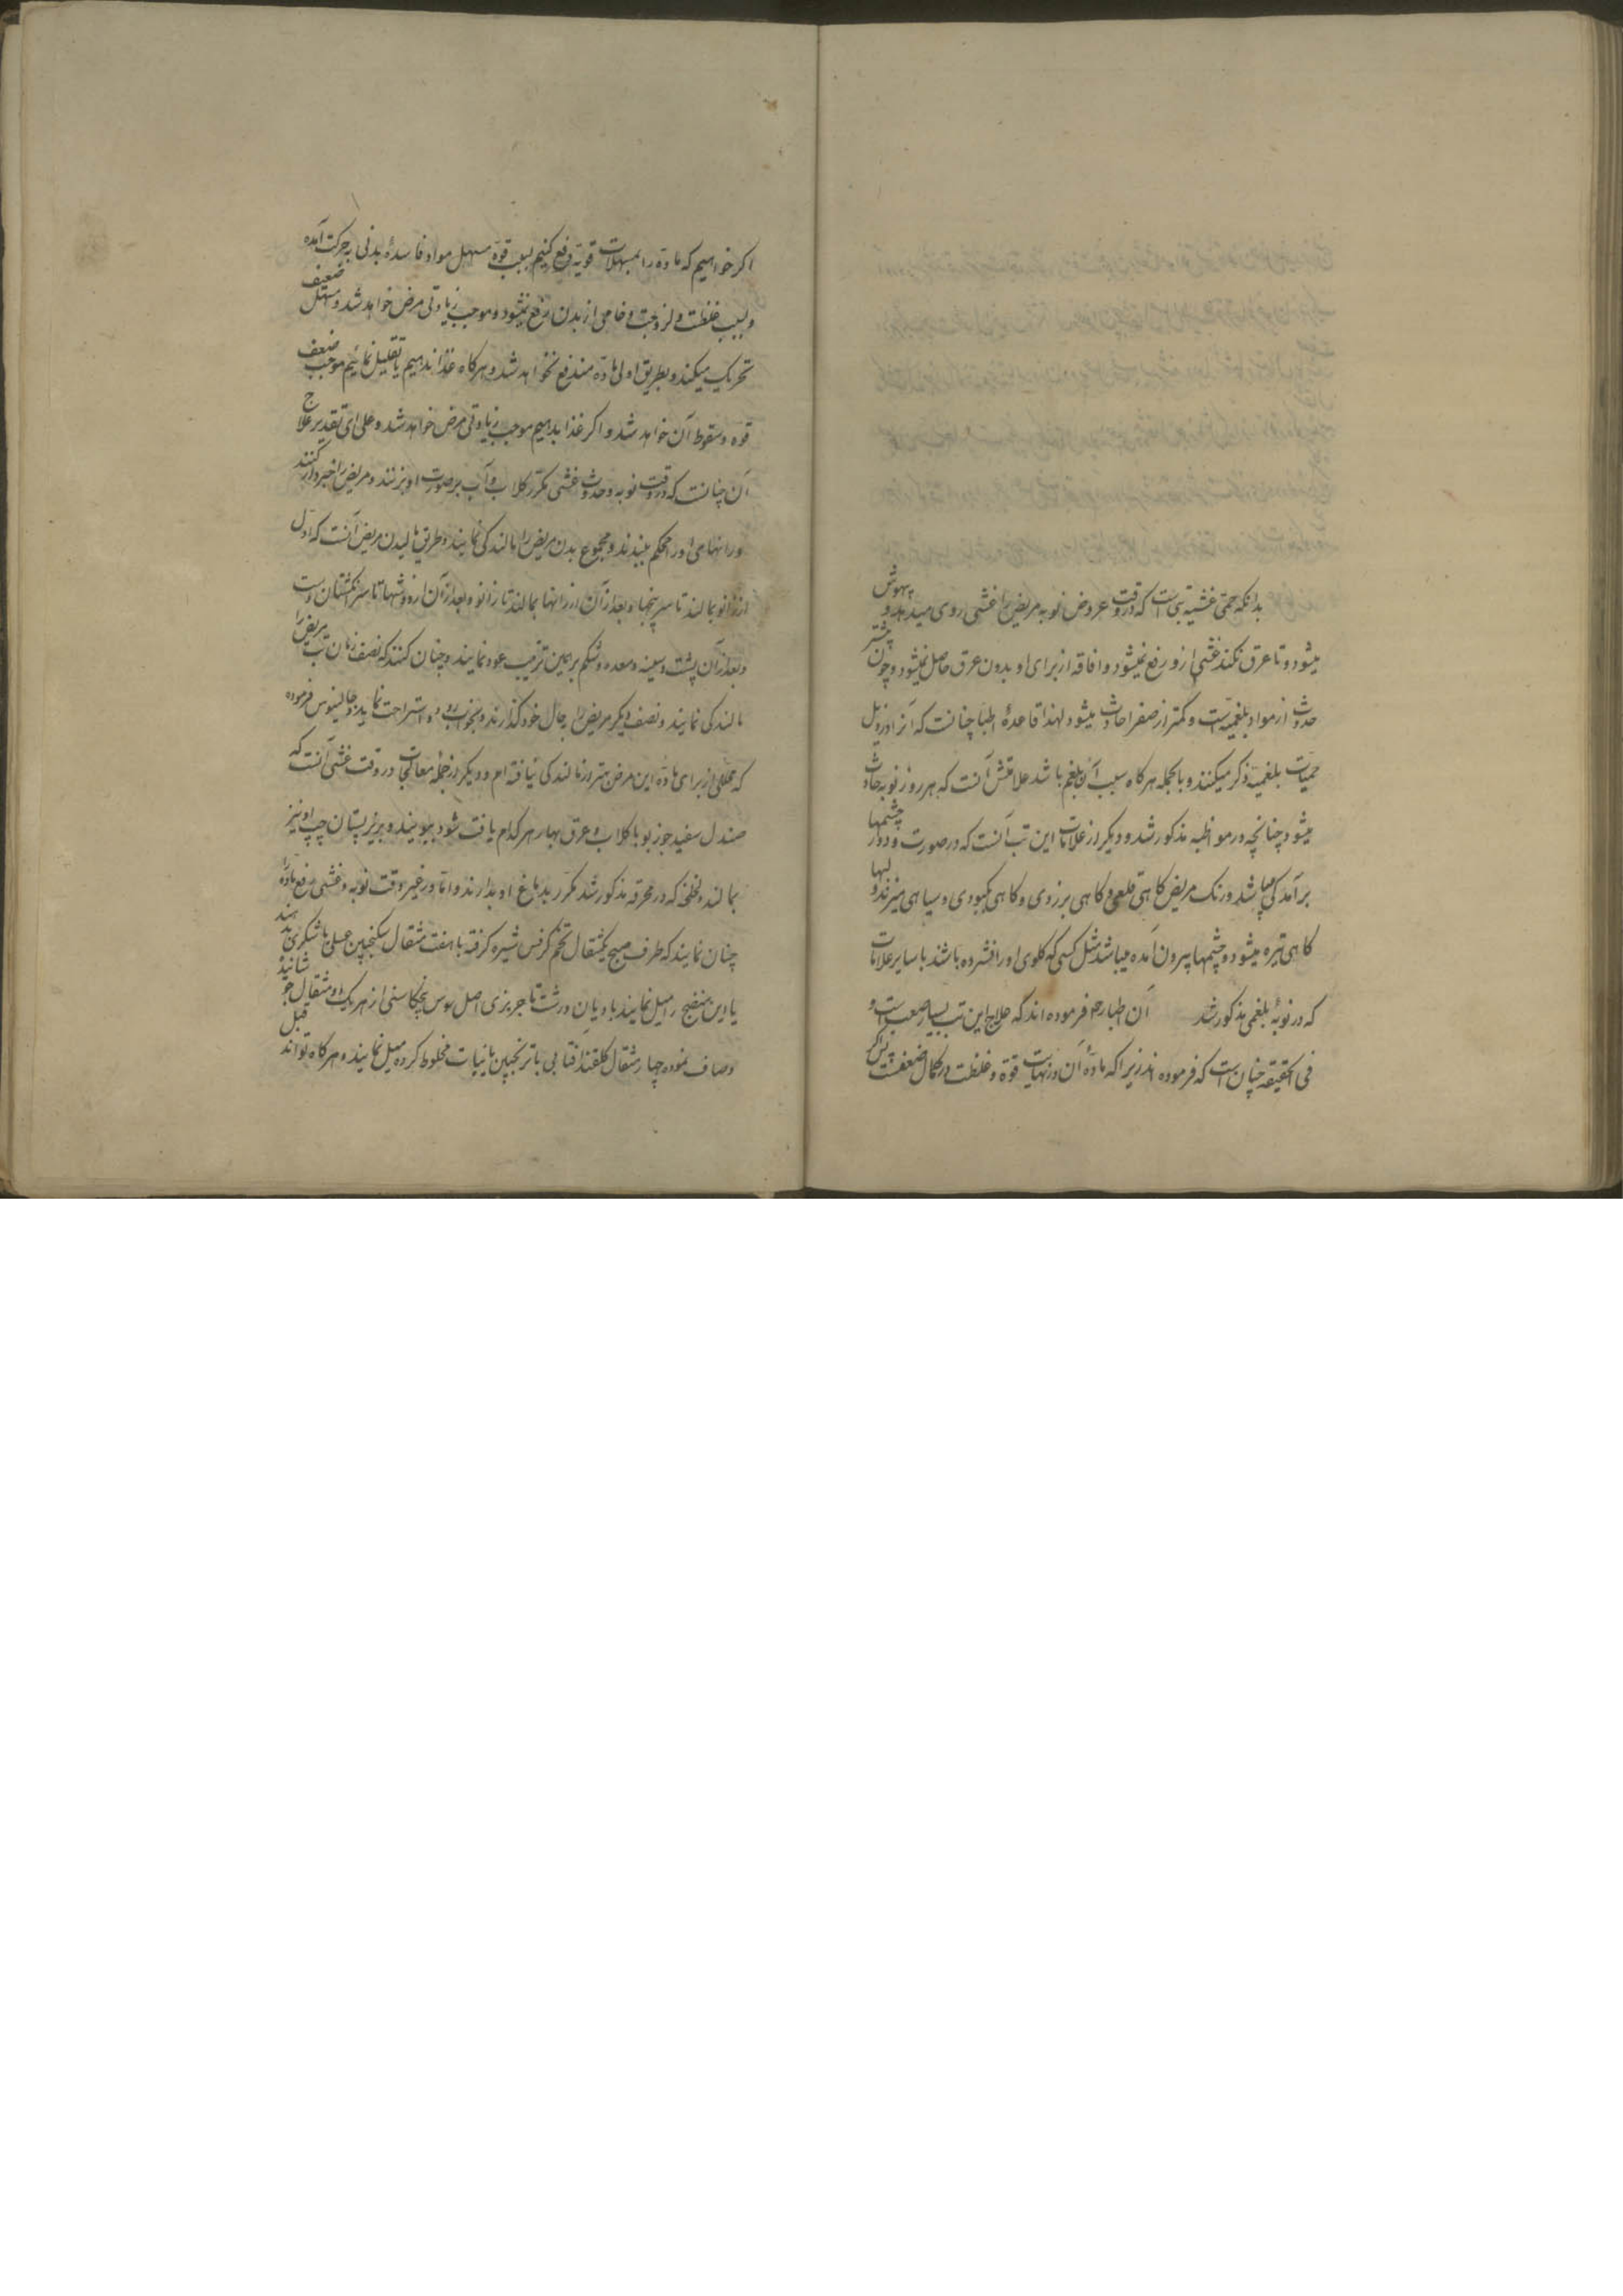 بدانکه حمی غشیه تبی است که در وقت عروض نوبه مریض را غشی روی میدهد و بیهوش
میشود و تا عرق نکند غشی ازو رفع نمیشود و افاقه از برای او بدون عرق حاصل نمیشود و چون بیشتر
حدوث از مواد بلغمیه است و کمتر از صفرا حادث میشود لهذا قاعدهٔ اطبا چنانست که آنرا در ذیل
حمیات بلغمیه ذکر میکنند و بالجمله هرگاه سبب آن بلغم باشد علامتش آنست که هر روز نوبه حادث
میشود چنانچه در مواظبه مذکور شد و دیگر از علامات این تب آنست که در صورت و دور چشمها
برآمدگی میباشد و رنگ مریض گاهی قلعی و گاهی بزردی و گاهی بکبودی و سیاهی میزند و لبها
گاهی تیره میشود و چشمها بیرون آمده میباشد مثل کسی که گلوی او را فشرده باشند با سایر علامات
که در نوبهٔ بلغمی مذکور شد آن اطبا رحم فرموده اند که علاج این تب بسیار صعب است و
فی الحقیقه چنان است که فرموده اند زیرا که مادهٔ آن در نهایت قوة و غلظت در کمال ضعفست پس اگر
اگر خواهیم که ماده را بمسهلات قویه دفع کنیم بسبب قوة مسهل مواد فاسدهٔ بدنی بحرکت آمده
و بسبب غلظت و لزوجت و خامی از بدن دفع نمیشود و موجب زیادتی مرض خواهد شد و مسهل ضعیف
تحریک میکند و بطریق اولی ماده مندفع نخواهد شد و هرگاه غذا ندهیم یا تقلیل نمائیم موجب ضعف
قوه و سقوط آن خواهد شد و اگر غذا بدهیم موجب زیادتی مرض خواهد شد و علی ای تقدیر علاج
آن چنانست که در وقت نوبه و حدوث غشی مکرر گلاب و آب بر صورت او بزنند و مریض را خبردار کنند
و رانهای او را محکم ببندند و مجموع بدن مریض را مالندگی نمایند و طریق مالیدن مریض آنست که اول
از زانو بمالند تا سر پنجها و بعد از آن از رانها بمالند تا زانو و بعد از آن از دوشها تا سر انگشتان دست
و بعد از آن پشت و سینه و معده و شکم بر همین ترتیب عود نمایند و چنان کنند که نصف زمان تب مریض را
مالندگی نمایند و نصف دیگر مریض را بحال خود گذارند و بخواب رود و استراحت نماید و جالینوس فرموده
که عملی از برای مادهٔ این مرض بهتر از مالندگی نیافته ام و دیگر از جمله معالجات در وقت غشی آنست که
صندل سفید جوزبو با گلاب و عرق بهار هر کدام یافت شود ببویند و بر زیر پستان چپ او نیز
بمالند و لخلخه که در محرقه مذکور شد مکرر بدماغ او بدارند و اما در غیر وقت نوبه و غشی رفع ماده
چنان نمایند که طرف صبح یکمثقال تخم کرفس شیره گرفته با هفت مثقال سکنجبین عسلی یا شکری بدهند
یا این منضج را میل نمایند بادیان درشت تاجریزی اصل سوس بیخ کاسنی از هریک دو مثقال جوشانیده
و صاف نموده چهار مثقال گلقند آفتابی با ترنجبین یا نبات مخلوط کرده میل نمایند و هرگاه تواند قبل